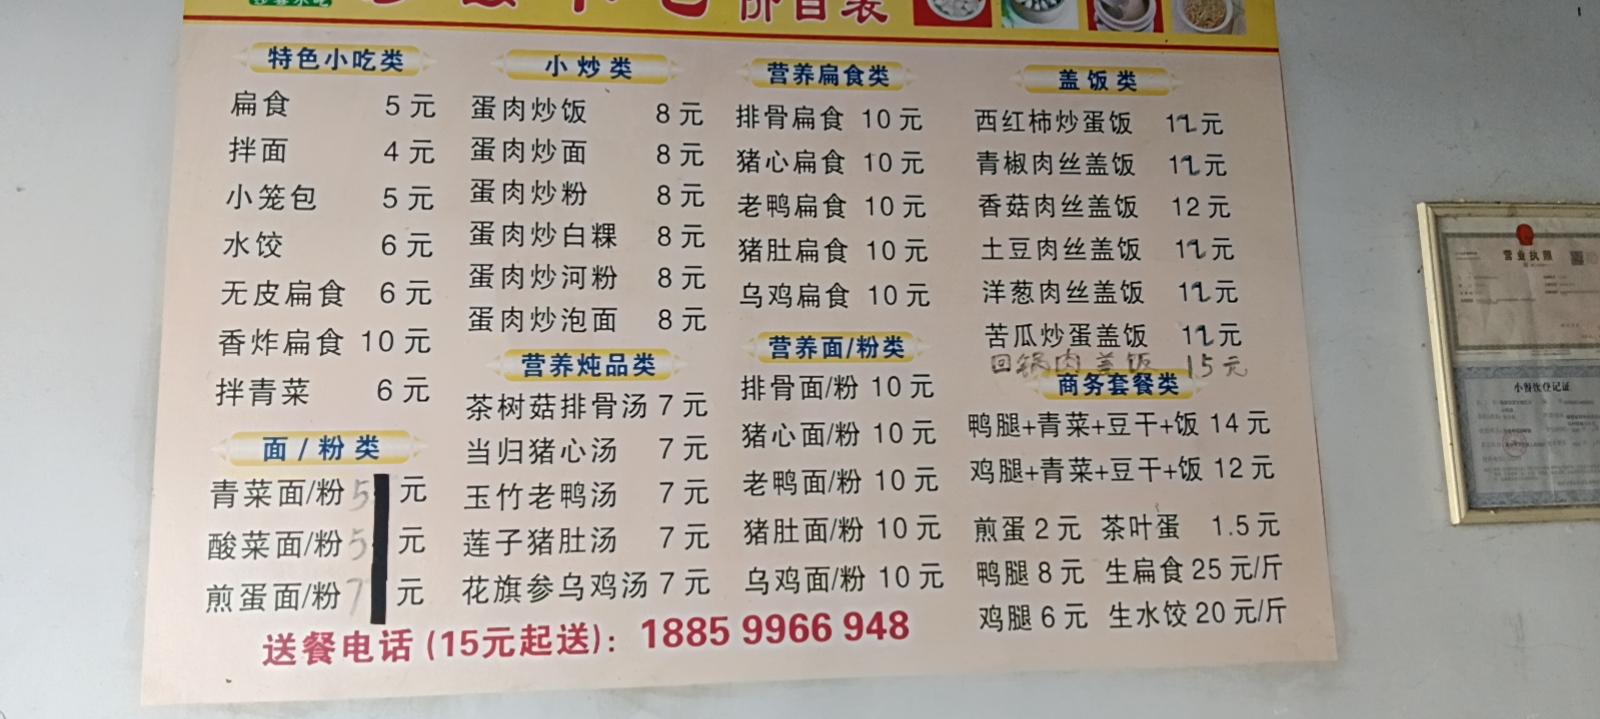 沙县小吃
价目表
特色小吃类
扁食 5元
拌面 4元
小笼包 5元
水饺 6元
无皮扁食 6元
香炸扁食 10元
拌青菜 6元
面/粉类
青菜面/粉 5元
酸菜面/粉 5元
煎蛋面/粉 7元
小炒类
蛋肉炒饭 8元
蛋肉炒面 8元
蛋肉炒粉 8元
蛋肉炒白粿 8元
蛋肉炒河粉 8元
蛋肉炒泡面 8元
营养炖品类
茶树菇排骨汤 7元
当归猪心汤 7元
玉竹老鸭汤 7元
莲子猪肚汤 7元
花旗参乌鸡汤 7元
营养扁食类
排骨扁食 10元
猪心扁食 10元
老鸭扁食 10元
猪肚扁食 10元
乌鸡扁食 10元
营养面/粉类
排骨面/粉 10元
猪心面/粉 10元
老鸭面/粉 10元
猪肚面/粉 10元
乌鸡面/粉 10元
盖饭类
西红柿炒蛋饭 12元
青椒肉丝盖饭 12元
香菇肉丝盖饭 12元
土豆肉丝盖饭 12元
洋葱肉丝盖饭 12元
苦瓜炒蛋盖饭 12元
回锅肉盖饭 15元
商务套餐类
鸭腿+青菜+豆干+饭 14元
鸡腿+青菜+豆干+饭 12元
煎蛋2元 茶叶蛋 1.5元
鸭腿8元 生扁食25元/斤
鸡腿6元 生水饺20元/斤
送餐电话(15元起送)：1885 9966 948
营业执照
小餐饮登记证